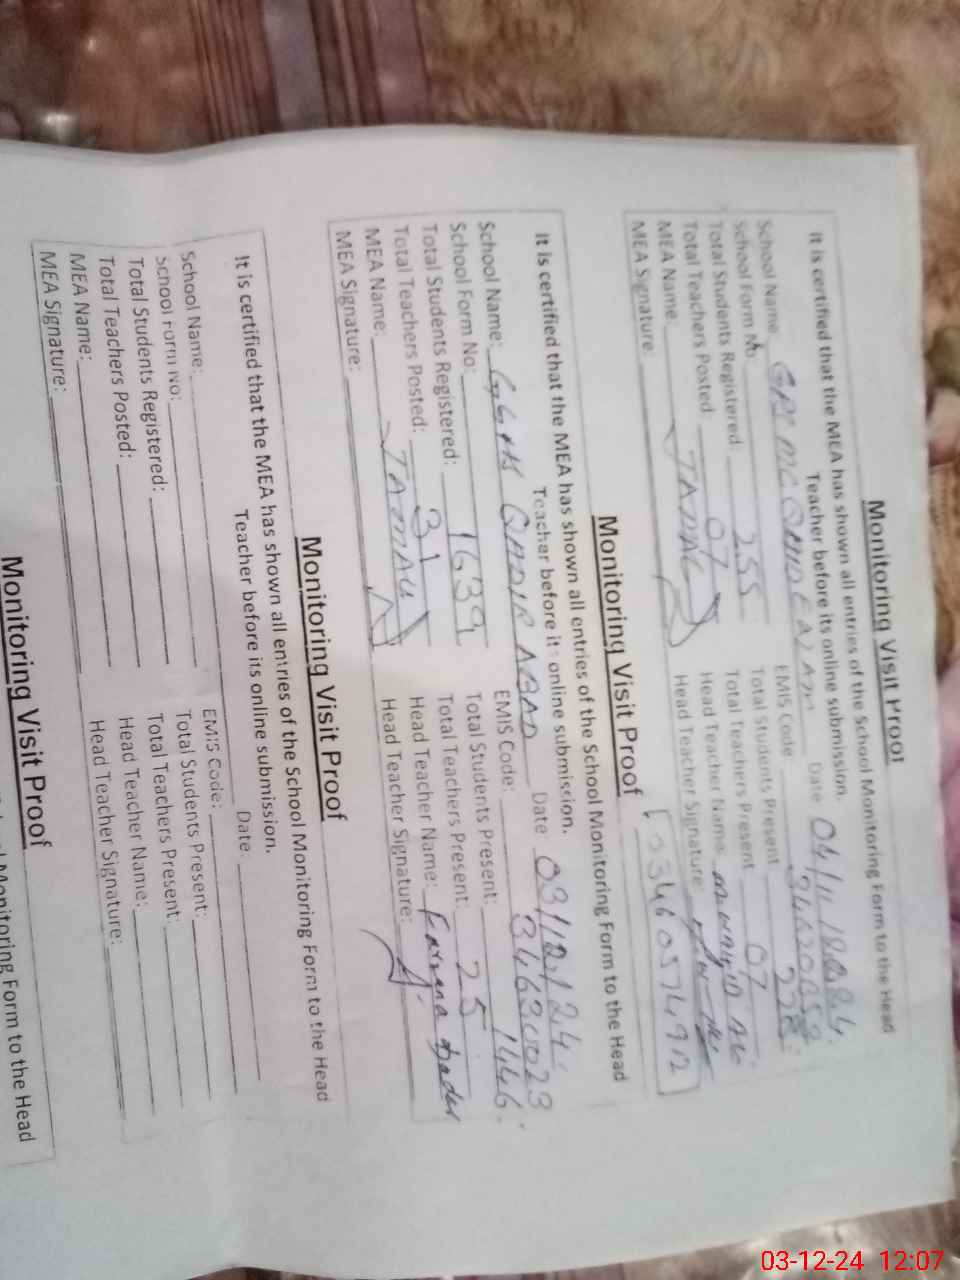 Monitoring Visit Proof
It is certified that the MEA has shown all entries of the School Monitoring Form to the Head
Teacher before its online submission. Date 04/11/2024
School Name EMIS Code
School Form No: 255 Total Students Present 228
Total Students Registered: Total Teachers Present 07
Total Teachers Posted: 07 Head Teacher Name:
MEA Name: JAMAL Head Teacher Signature:
MEA Signature: 03460574912
Monitoring Visit Proof
It is certified that the MEA has shown all entries of the School Monitoring Form to the Head
Teacher before its online submission. Date 03/12/24
School Name: GGHS QADIR ABAD EMIS Code: 34630023
School Form No: 1639 Total Students Present: 1446
Total Students Registered: 31 Total Teachers Present: 25
Total Teachers Posted: Head Teacher Name: Farzana
MEA Name: JAMAL Head Teacher Signature:
MEA Signature:
Monitoring Visit Proof
It is certified that the MEA has shown all entries of the School Monitoring Form to the Head
Teacher before its online submission. Date:
School Name: EMIS Code:
School Form No: Total Students Present:
Total Students Registered: Total Teachers Present:
Total Teachers Posted: Head Teacher Name:
MEA Name: Head Teacher Signature:
MEA Signature:
Monitoring Visit Proof
Monitoring Form to the Head
03-12-24 12:07